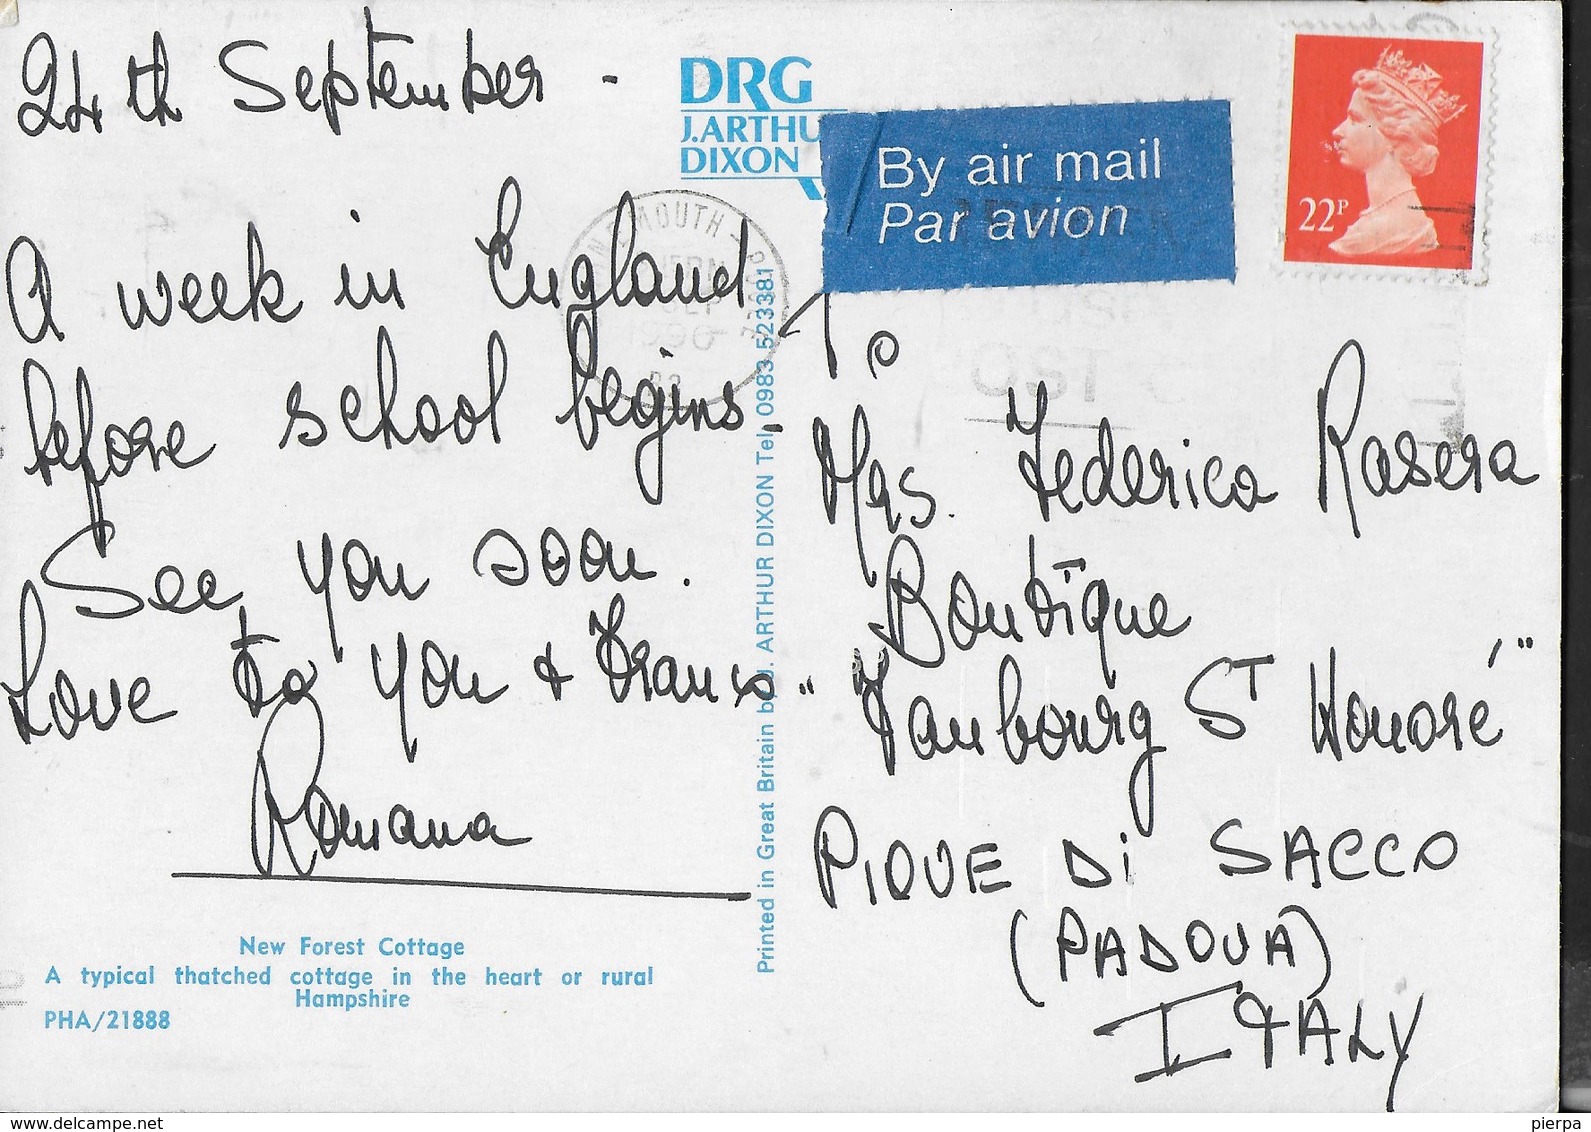 24th September -
A week in England
before school begins.
See you soon.
Love to you & Franco
Romana
New Forest Cottage
A typical thatched cottage in the heart or rural
Hampshire
PHA/21888
DRG
J.ARTHU
DIXON
Printed in Great Britain by J. ARTHUR DIXON Tel. 0983 523381
By air mail
Par avion
22P
1990
Mrs. Federica Rasera
Boutique
"Faubourg St Honoré"
PIOVE Di SACCO
(PADOVA)
ITALY
www.delcampe.net
pierpa